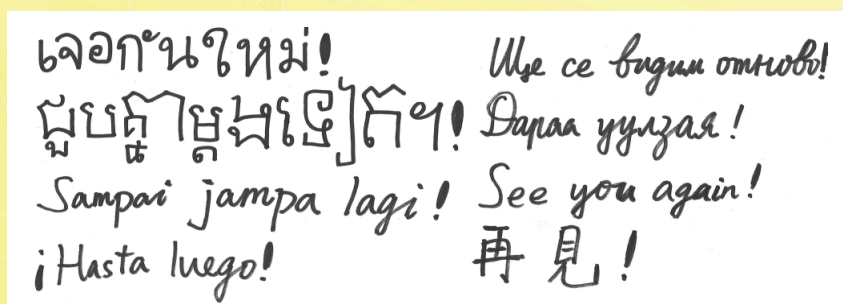 เจอกันใหม่!
ជួបគ្នាម្ដងទៀតៗ!
Sampai jampa lagi!
¡Hasta luego!
Ще се видим отново!
Дараа уулзая!
See you again!
再見!